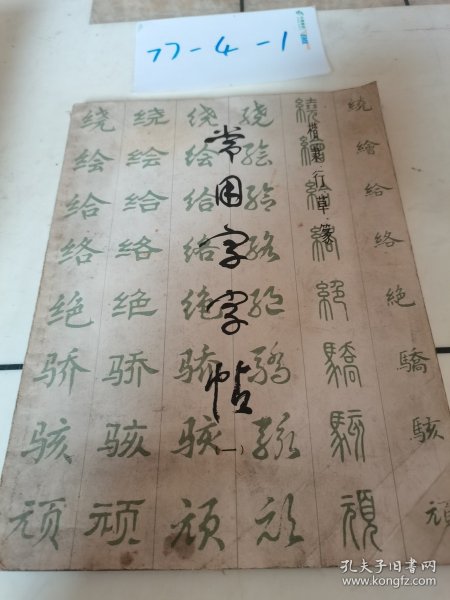 77-4-1
常用字字帖
(一)
楷隶行草篆
绕 绕 绕 绕 繞 繞
绘 绘 绘 绘 繪 繪
给 给 给 给 給 給
络 络 络 络 絡 絡
绝 绝 绝 绝 絶 絶
骄 骄 骄 驕 驕 驕
骇 骇 骇 骇 駭 駭
顽 顽 顽 顽 頑 頑
孔夫子旧书网
www.kongfz.com